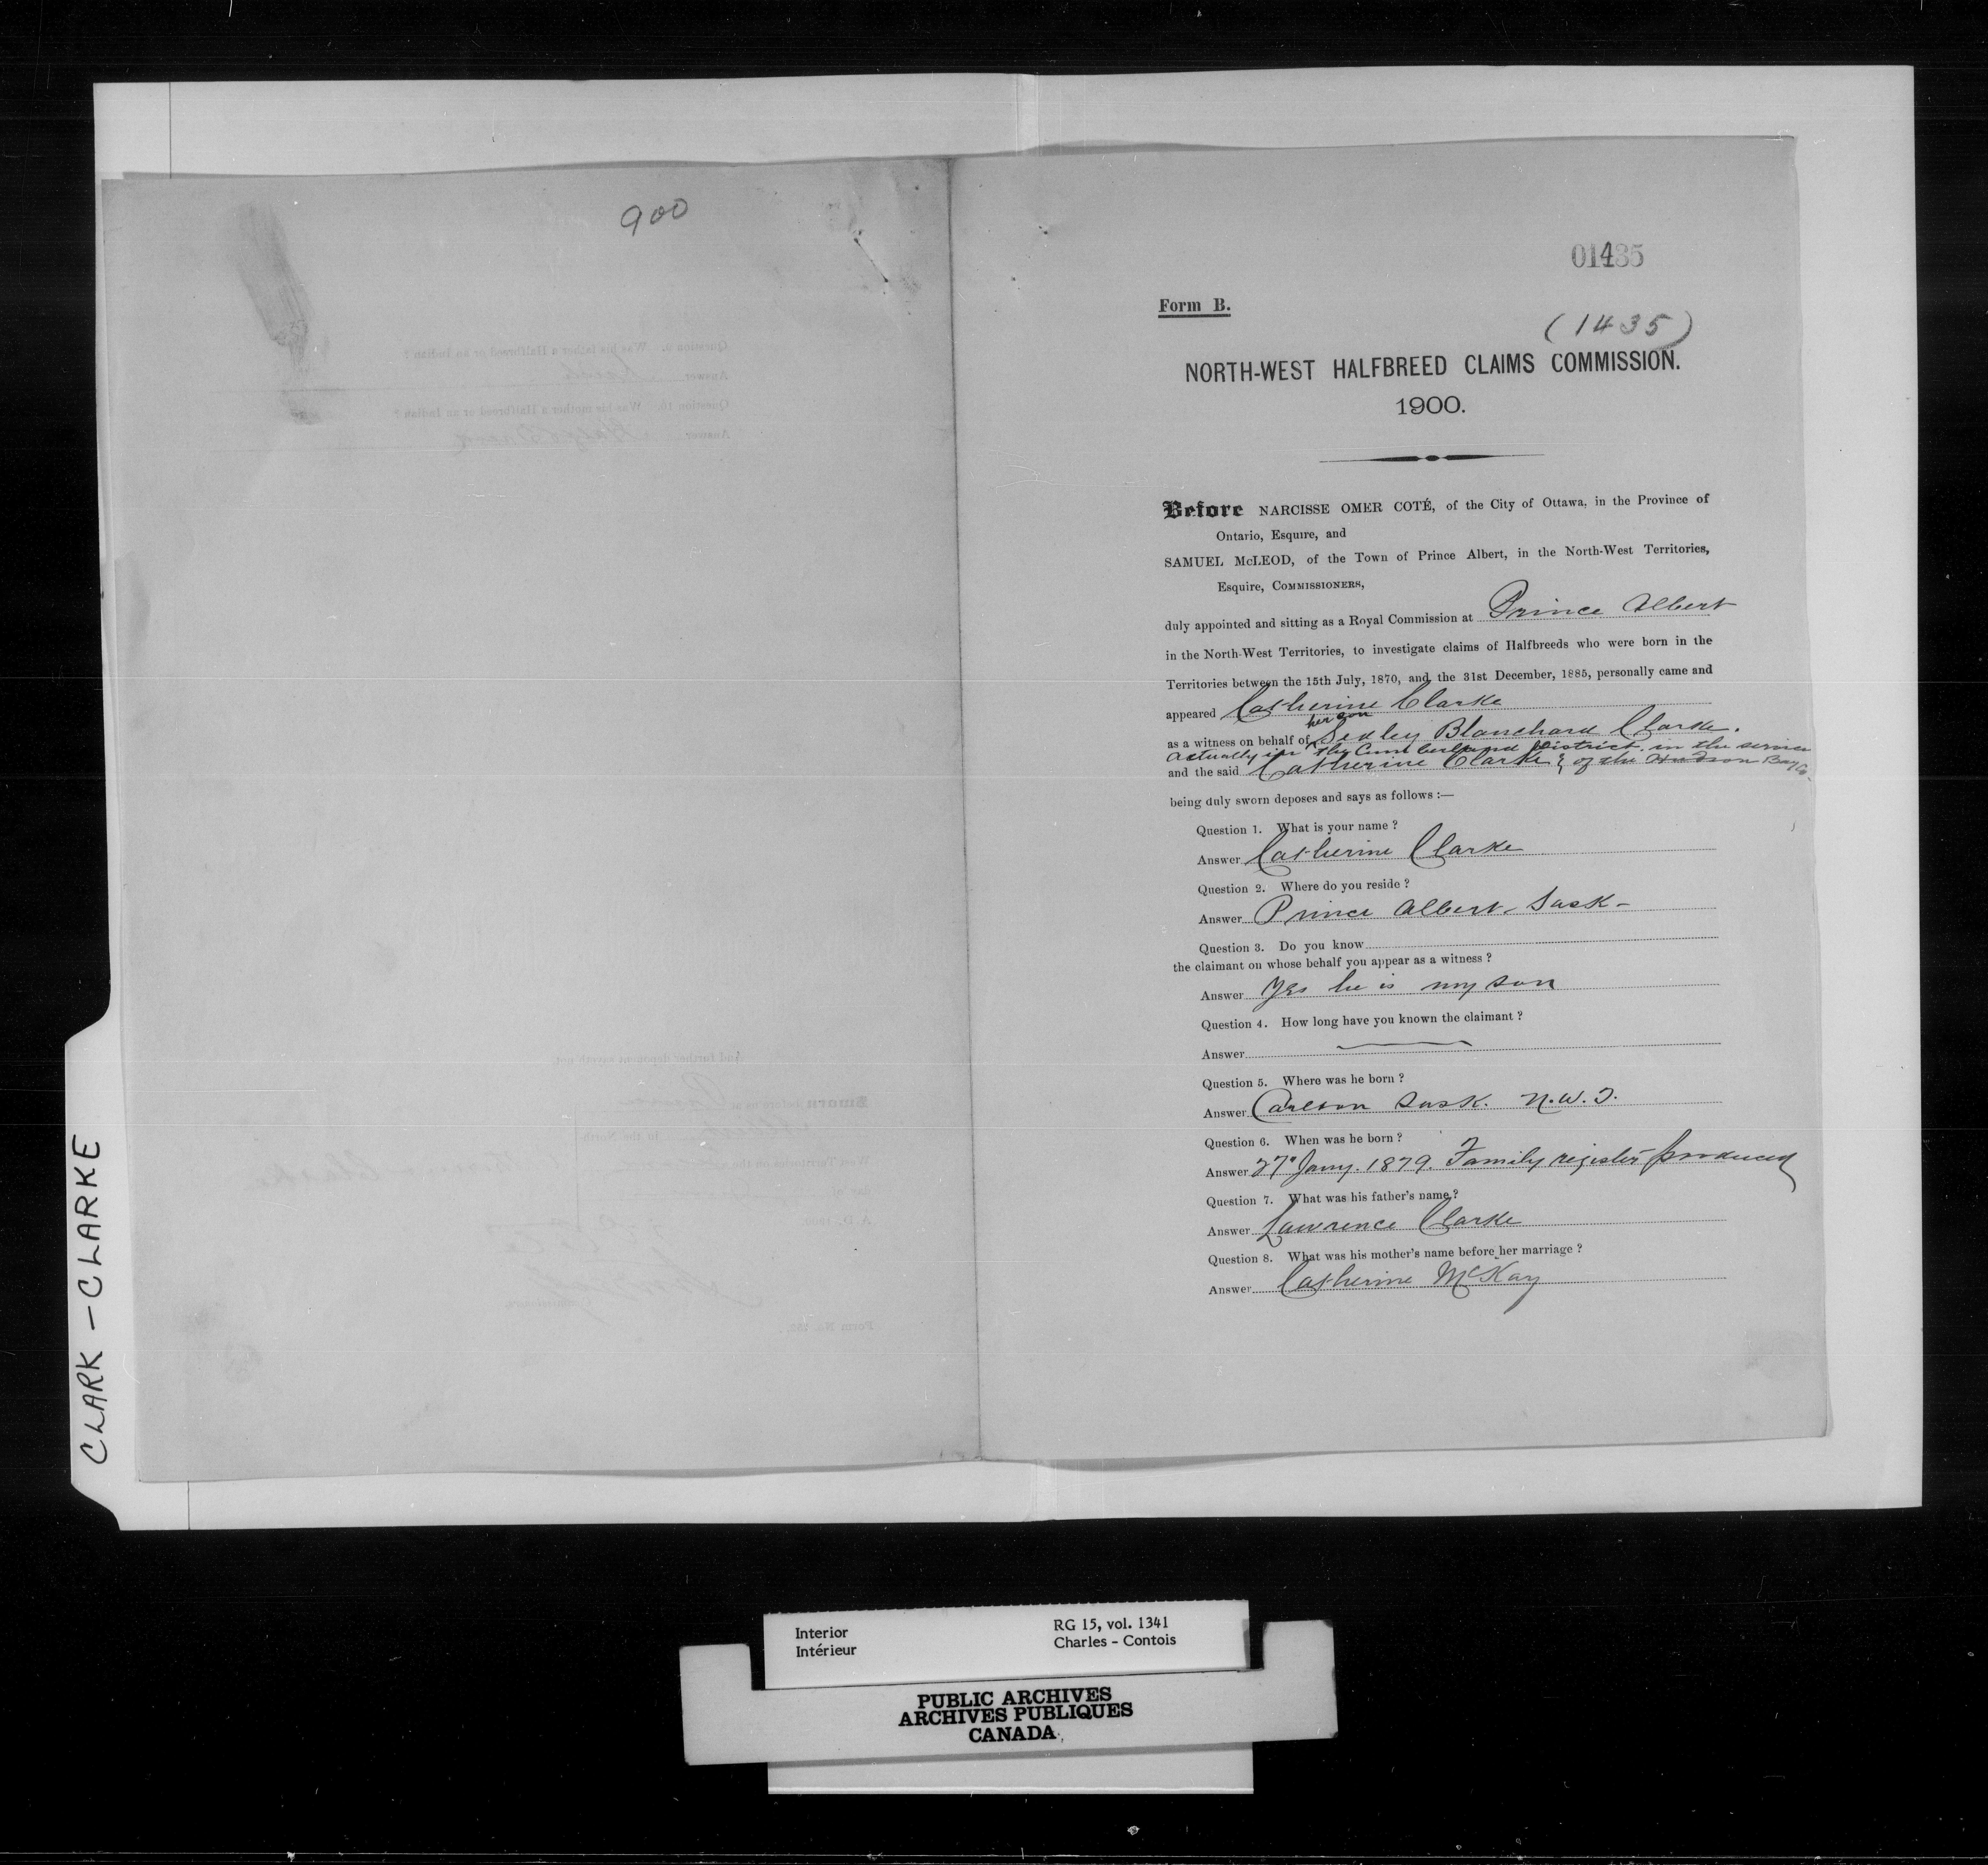 CLARK – CLARKE
900
01435
Form B.
(1435)
NORTH-WEST HALFBREED CLAIMS COMMISSION.
1900.
Before NARCISSE OMER COTÉ, of the City of Ottawa, in the Province of
Ontario, Esquire, and
SAMUEL McLEOD, of the Town of Prince Albert, in the North-West Territories,
Esquire, COMMISSIONERS,
duly appointed and sitting as a Royal Commission at Prince Albert
in the North-West Territories, to investigate claims of Halfbreeds who were born in the
Territories between the 15th July, 1870, and the 31st December, 1885, personally came and
appeared Catherine Clarke
her son
as a witness on behalf of Sexley Blanchard Clarke.
actually in the Cumberland District in the service
and the said Catherine Clarke & of the Hudson Bay Co.
being duly sworn deposes and says as follows :—
Question 1. What is your name ?
Answer Catherine Clarke
Question 2. Where do you reside ?
Answer Prince Albert - Sask -
Question 3. Do you know
the claimant on whose behalf you appear as a witness ?
Answer Yes he is my son
Question 4. How long have you known the claimant ?
Answer
Question 5. Where was he born ?
Answer Carlton Sask. N.W.T.
Question 6. When was he born ?
Answer 27th Jany. 1879. Family register produced
Question 7. What was his father's name ?
Answer Lawrence Clarke
Question 8. What was his mother's name before her marriage ?
Answer Catherine McKay
Interior
Intérieur
RG 15, vol. 1341
Charles - Contois
PUBLIC ARCHIVES
ARCHIVES PUBLIQUES
CANADA